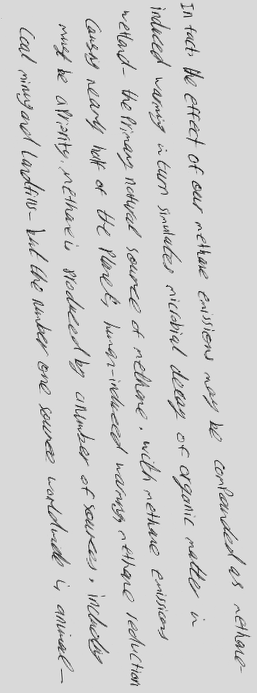 In fact, the effect of our methane emissions may be compounded as methane-
induced warming in turn simulates microbial decay of organic matter in
wetland- the Primary natural source of methane. with methane emissions
Causing nearly half of the Planet's human-induced warming, methane reduction
must be a Priority, methane is Produced by a number of sources, including
Coal mining and landfills- but the number one source worldwide is animal-